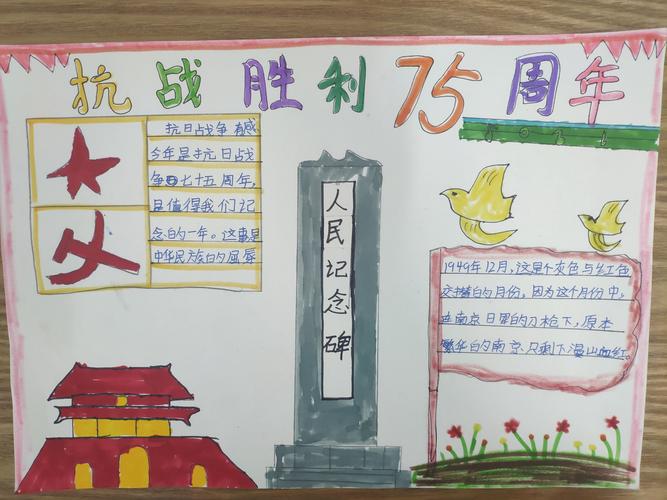 抗战胜利75周年
抗日战争有感
今年是抗日战
争七十五周年,
是值得我们记
念的一年。这事是
中华民族的屈辱
人民记念碑
1949年12月,这是个灰色与红色
交织的月份,因为这个月份中,
在南京日军的刀枪下,原本
繁华的南京只剩下漫山血红。